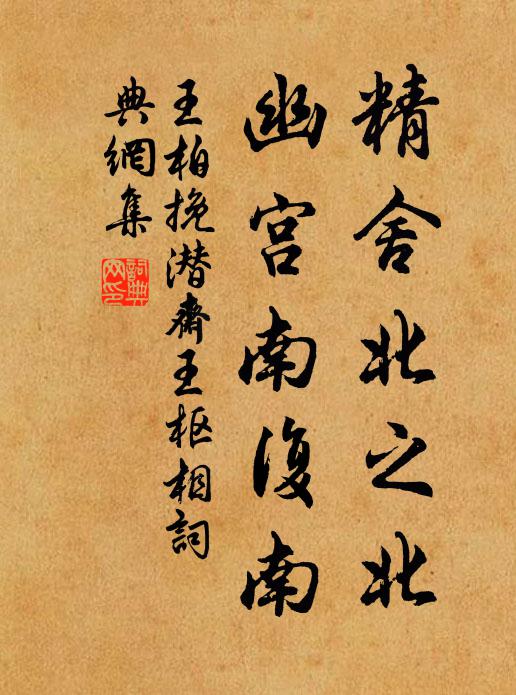 精舍北之北
幽宫南復南
王柏挽潜齋王枢相詞
典網集
詞典網印